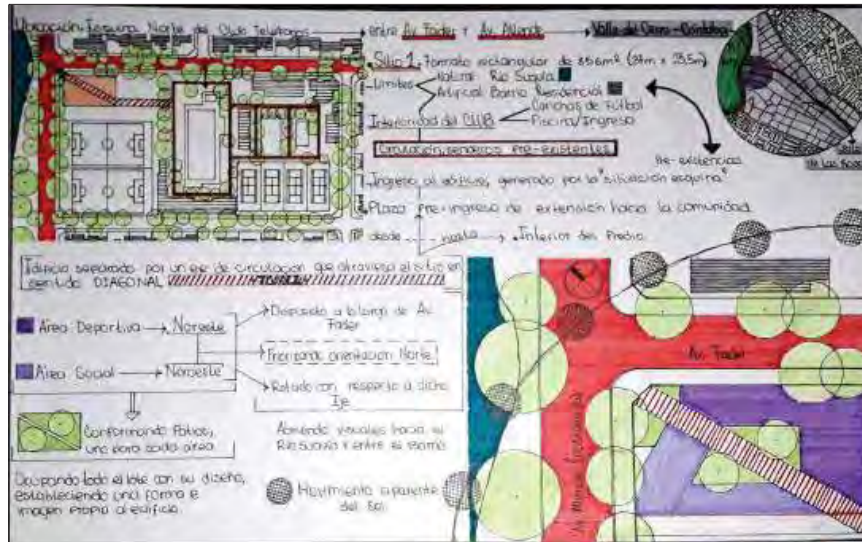 Ubicación: Esquina Norte del Club Teléfonos → entre Av. Fader y Av. Allende → Valle del Cerro - Córdoba
Sitio 1, Formato rectangular de
Límites
Natural Río Suquía
Artificial Barrio Residencial
Interioridad del CLUB
Canchas de Fútbol
Piscina/Ingreso
Circulación, senderos pre-existentes
Pre-existencias
de Las Rosas
Ingreso al edificio, generado por la "situación esquina"
Plaza pre-ingreso de extensión hacia la comunidad
desde → hasta → Interior del Predio
Edificio separado por un eje de circulación que atraviesa el sitio en
sentido DIAGONAL
Área Deportiva → Noreste
Dispuesto a lo largo de Av.
Fader
Priorizando orientación Norte!
Área Social → Noroeste
Rotado con respecto a dicho
Eje
Conformando Patios,
uno para cada área
Abriendo visuales hacia el
Río Suquía y entre el barrio
Ocupando todo el lote con su diseño,
estableciendo una forma e
imagen propia al edificio
Movimiento aparente
del Sol
Av. Fader